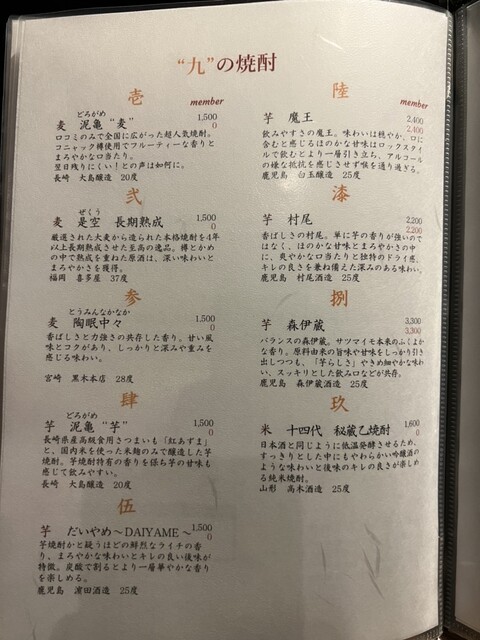 “九”の焼酎
壱
member
どろがめ
麦 泥亀 “麦” 1,500
0
口コミのみで全国に広がった超人気焼酎。
コニャック樽使用でフルーティーな香りと
まろやかな口当たり。
翌日残りにくい！との声は如何に。
長崎 大島醸造 20度
弐
ぜくう
麦 是空 長期熟成 1,500
0
厳選された大麦から造られた本格焼酎を4年
以上長期熟成させた至高の逸品。樽とかめ
の中で熟成を重ねた原酒は、深い味わいと
まろやかさを獲得。
福岡 喜多屋 37度
参
とうみんなかなか
麦 陶眠中々 1,500
0
香ばしさと力強さの共存した香り。甘い風
味とコクがあり、しっかりと深みや重みを
感じる味わい。
宮崎 黒木本店 28度
肆
どろがめ
芋 泥亀 “芋” 1,500
0
長崎県産高級食用さつまいも「紅あずま」
と、国内米を使った米麹のみで醸造した芋
焼酎。芋焼酎特有の香りを保ち芋の甘味も
感じて飲みやすい。
長崎 大島醸造 20度
伍
芋 だいやめ～DAIYAME～ 1,500
0
芋焼酎かと疑うほどの鮮烈なライチの香
り、まろやかな味わいとキレの良い後味が
特徴。炭酸で割るとより一層華やかな香り
を楽しめる。
鹿児島 濵田酒造 25度
陸
member
芋 魔王 2,400
2,400
飲みやすさの魔王。味わいは穏やか。口に
含むと感じるほのかな甘味はロックスタイ
ルで飲むとより一層引き立ち、アルコール
の嫌な抵抗を感じさせず喉を通り過ぎる。
鹿児島 白玉醸造 25度
漆
芋 村尾 2,200
2,200
香ばしさの村尾。単に芋の香りが強いので
はなく、ほのかな甘味とまろやかさの中
に、爽やかな口当たりと独特のドライ感、
キレの良さを兼ね備えた深みのある味わい。
鹿児島 村尾酒造 25度
捌
芋 森伊蔵 3,300
3,300
バランスの森伊蔵。サツマイモ本来のふくよか
な香り。原料由来の旨味や甘味をしっかり引き
出しつつも、「芋らしさ」やきめ細やかな味わ
い、スッキリとした飲み口などが共存。
鹿児島 森伊蔵酒造 25度
玖
米 十四代 秘蔵乙焼酎 1,600
0
日本酒と同じように低温発酵させるため、
すっきりとした中にもやわらかい吟醸酒の
ような味わいと後味のキレの良さが楽しめ
る純米焼酎。
山形 高木酒造 25度